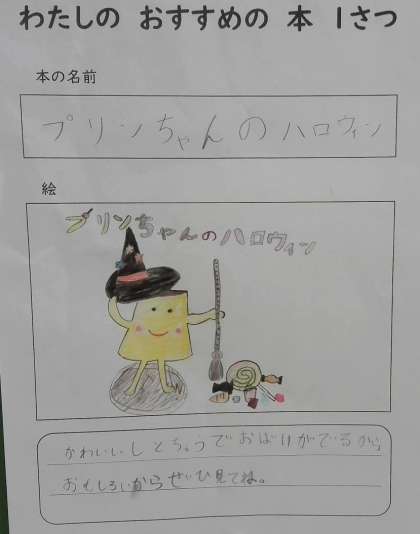 わたしの おすすめの 本 1さつ
本の名前
プリンちゃんのハロウィン
絵
プリンちゃんのハロウィン
かわいいしとちゅうでおばけがでるから
おもしろいからぜひ見てね。